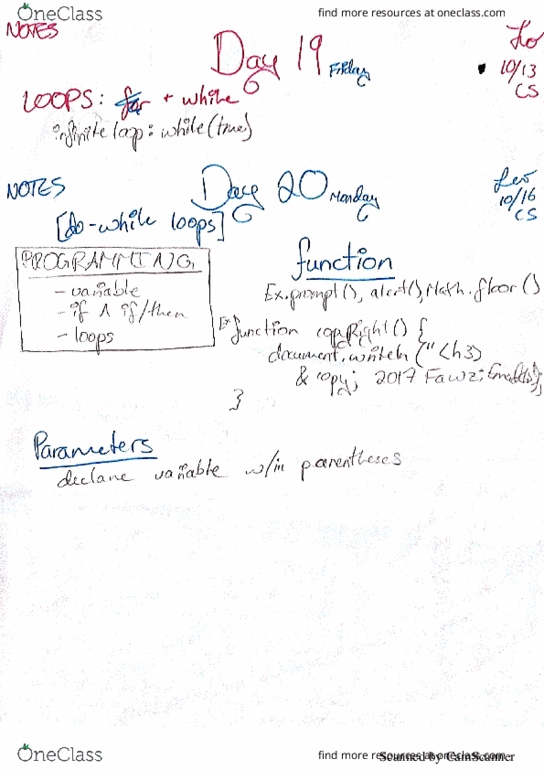 OneClass
find more resources at oneclass.com
NOTES
Day 19 Friday
10/13
CS
LOOPS: for + while
infinite loop: while(true)
NOTES
Day 20 Monday
Leo
10/16
CS
[do-while loops]
PROGRAMMING
- variable
- if ∧ if/then
- loops
function
Ex. prompt(), alert(), Math.floor()
function copyRight() {
document.writeln("<h3)
& copy; 2017 Fawzi
}
Parameters
declare variable w/in parentheses
OneClass
find more resources at oneclass.com
Scanned by CamScanner